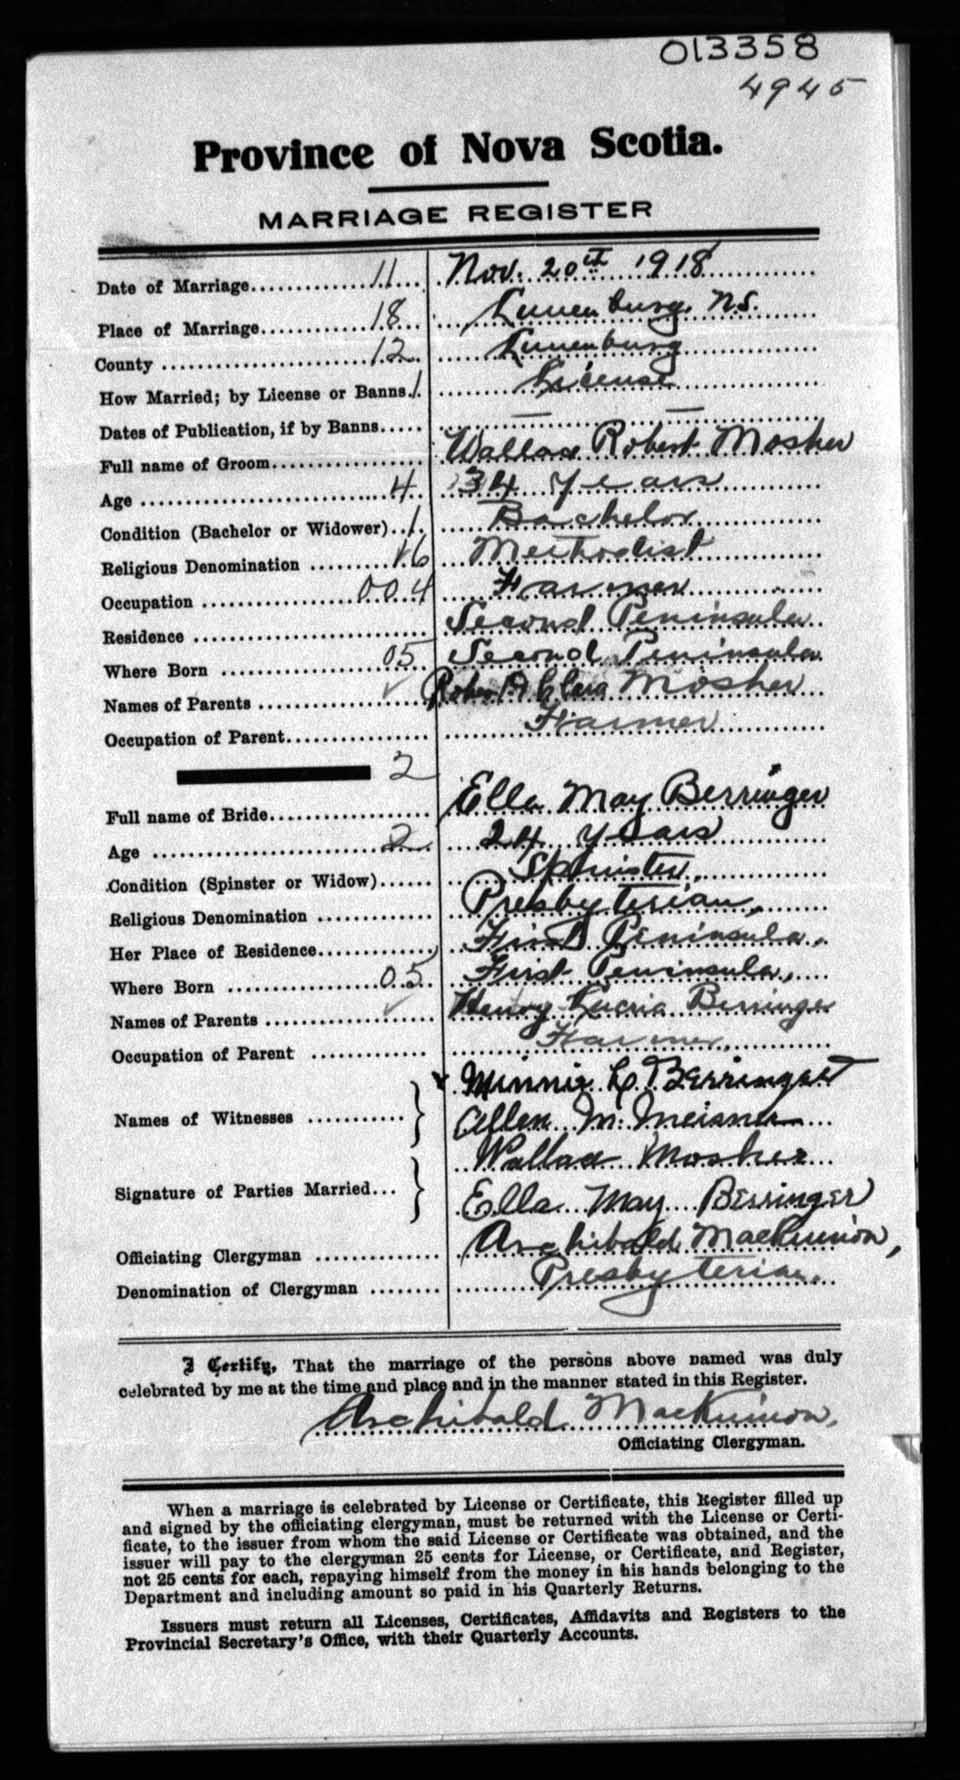 013358
4945
Province of Nova Scotia.
MARRIAGE REGISTER
Date of Marriage 11 Nov. 20th 1918
Place of Marriage 18 Lunenburg N.S.
County 12 Lunenburg
How Married; by License or Banns 1 License
Dates of Publication, if by Banns — —
Full name of Groom Wallace Robert Mosher
Age 4 34 years
Condition (Bachelor or Widower) 1 Bachelor
Religious Denomination 16 Methodist
Occupation 004 Farmer
Residence Second Peninsula
Where Born 05 Second Peninsula
Names of Parents ✓ Mosher
Occupation of Parent Farmer
2
Full name of Bride Ella May Berringer
Age 2 24 years
Condition (Spinster or Widow) Spinster.
Religious Denomination Presbyterian,
Her Place of Residence First Peninsula,
Where Born 05 First Peninsula,
Names of Parents ✓ Henry Lucria Berringer
Occupation of Parent Farmer,
Names of Witnesses Minnie L. Berringer
Allen M. Meisner
Signature of Parties Married Wallace Mosher
Ella May Berringer
Officiating Clergyman Archibald MacKinnon,
Denomination of Clergyman Presbyterian.
I Certify, That the marriage of the persons above named was duly
celebrated by me at the time and place and in the manner stated in this Register.
Archibald MacKinnon,
Officiating Clergyman.
When a marriage is celebrated by License or Certificate, this Register filled up
and signed by the officiating clergyman, must be returned with the License or Certi-
ficate, to the issuer from whom the said License or Certificate was obtained, and the
issuer will pay to the clergyman 25 cents for License, or Certificate, and Register,
not 25 cents for each, repaying himself from the money in his hands belonging to the
Department and including amount so paid in his Quarterly Returns.
Issuers must return all Licenses, Certificates, Affidavits and Registers to the
Provincial Secretary's Office, with their Quarterly Accounts.